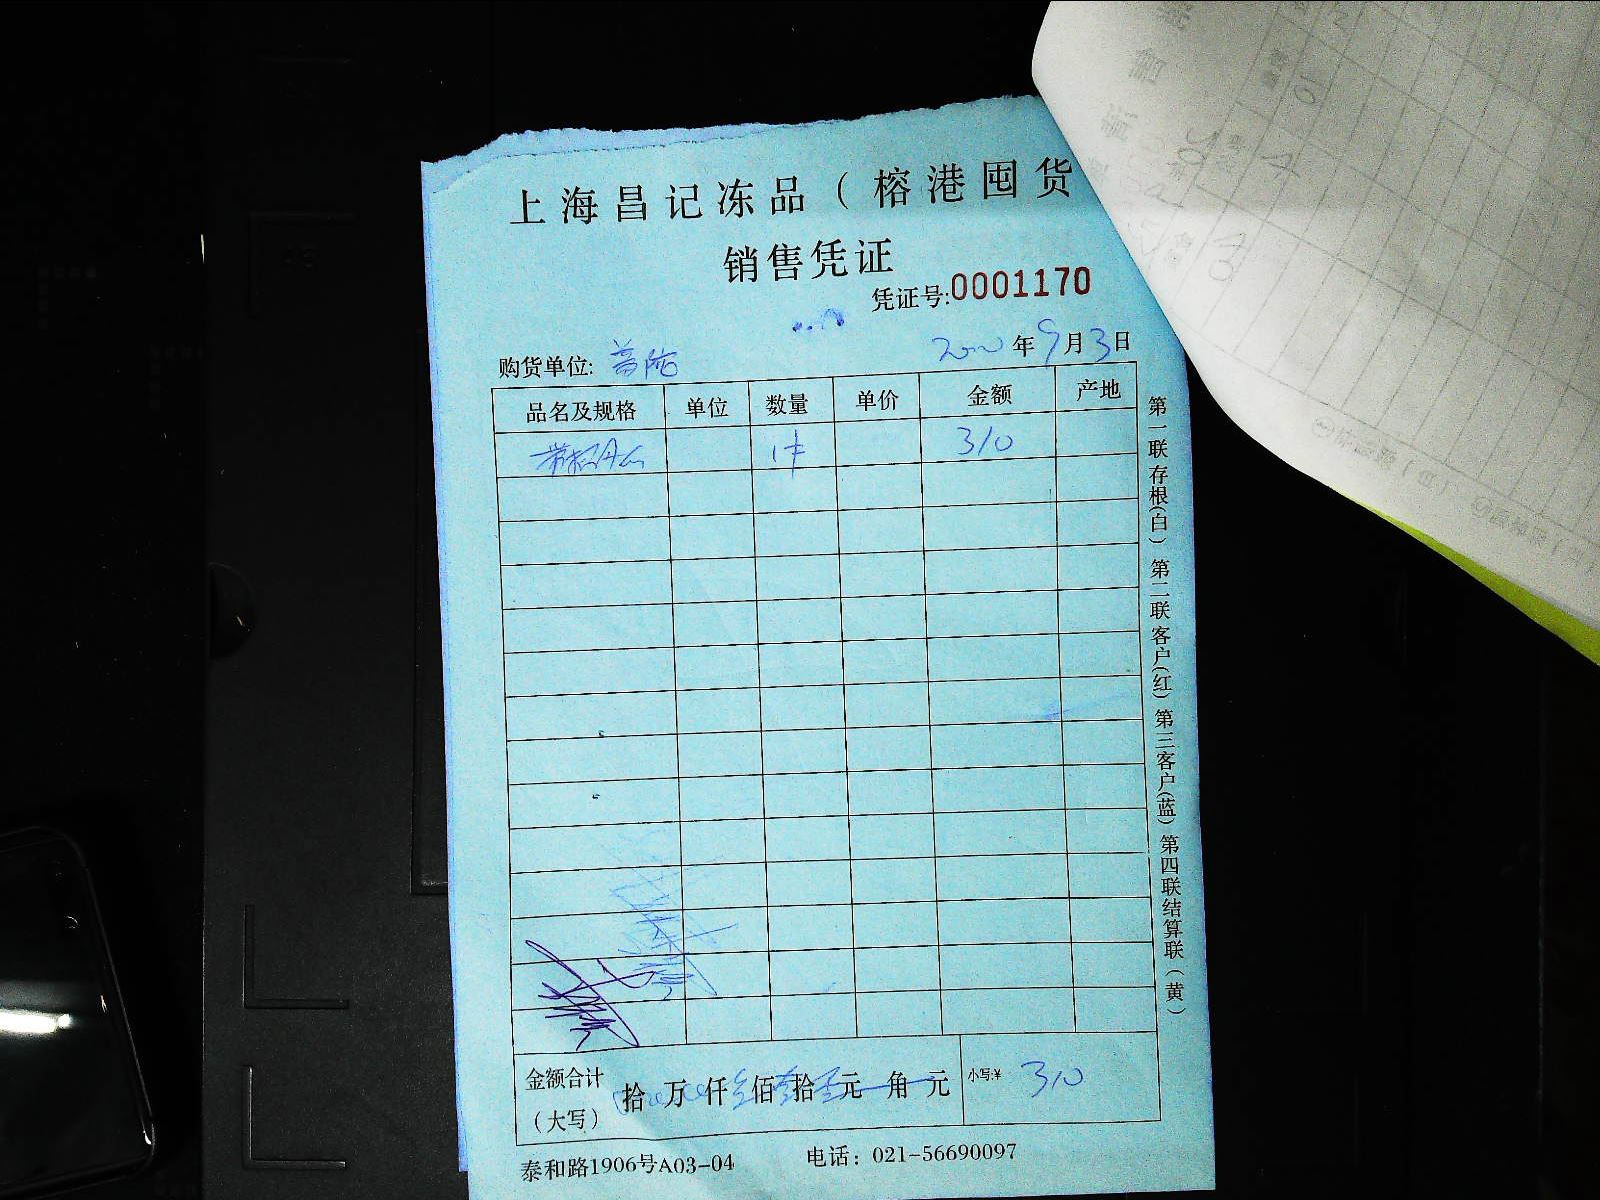 上海昌记冻品（榕港囤货
销售凭证
凭证号:0001170
2020年9月3日
购货单位:
品名及规格 单位 数量 单价 金额 产地
1件 310
金额合计
（大写）
拾 万 仟 佰 拾 元 角 元
小写:¥ 310
泰和路1906号A03-04 电话：021-56690097
第一联存根(白) 第二联客户(红) 第三客户(蓝) 第四联结算联（黄）